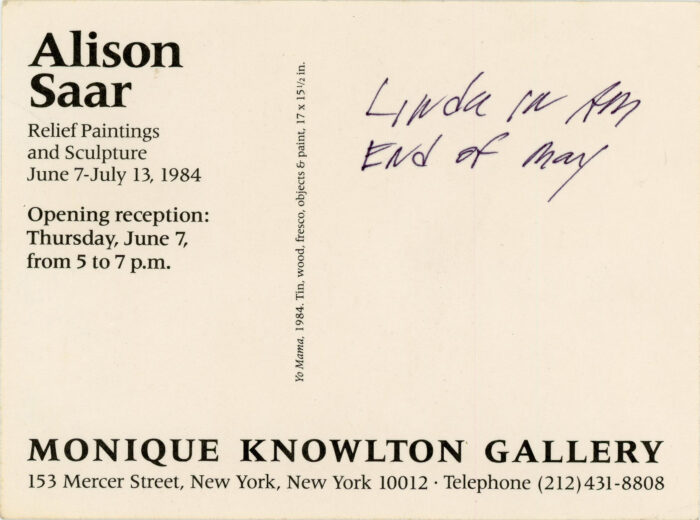 Alison
Saar
Relief Paintings
and Sculpture
June 7-July 13, 1984
Opening reception:
Thursday, June 7,
from 5 to 7 p.m.
Yo Mama, 1984. Tin, wood, fresco, objects & paint, 17 x 15 1/2 in.
Linda in Am
End of May
MONIQUE KNOWLTON GALLERY
153 Mercer Street, New York, New York 10012 · Telephone (212) 431-8808